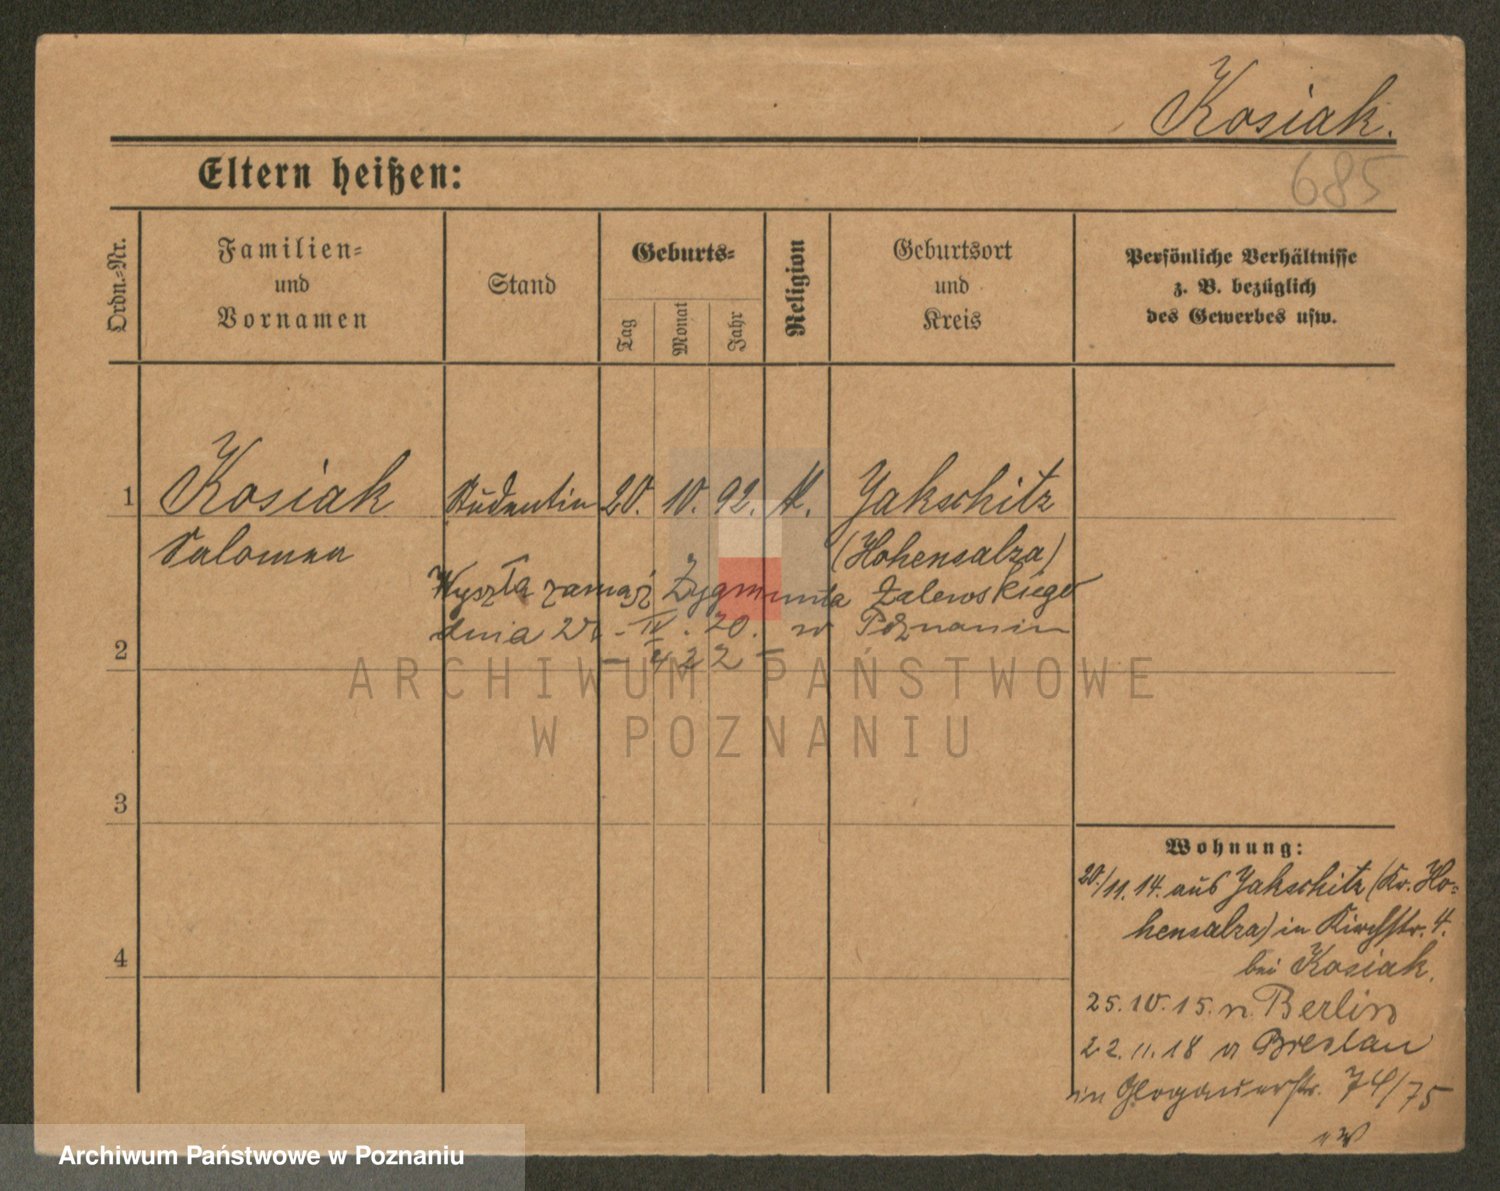 Kosiak.
685
Eltern heißen:
Ordn.-Nr.
Familien-
und
Vornamen
Stand
Geburts-
Tag
Monat
Jahr
Religion
Geburtsort
und
Kreis
Persönliche Verhältnisse
z. B. bezüglich
des Gewerbes usw.
1
Kosiak Studentin 20. 10. 92. k. Jakschitz
Salomea (Hohensalza)
Wyszła zamąż Zygmunta Zalewskiego
dnia IV. 20. w Poznaniu
2
3
4
Wohnung:
20./11. 14. aus Jakschitz (Kr. Ho-
hensalza) in Kirchstr. 4.
bei Kosiak.
25. 10. 15. n. Berlin
22. 11. 18 v Breslau
in Glogauerstr. 74/75
ARCHIWUM PAŃSTWOWE
W POZNANIU
Archiwum Państwowe w Poznaniu